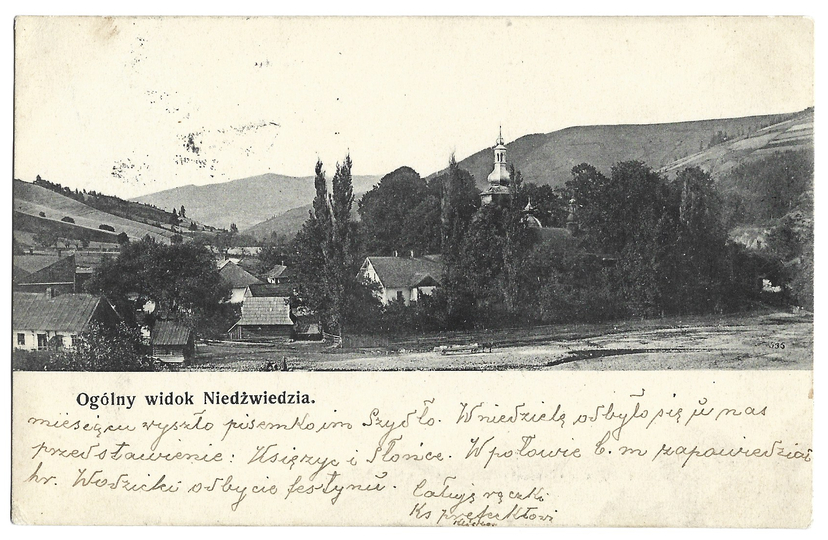 535
Ogólny widok Niedźwiedzia.
miesięcu wyszło pisemko im Szydło. W niedzielę odbyło się u nas
przedstawienie: Księżyc i Słońce. W połowie b. m zapowiedział
hr. Wodzicki odbycie festynu. Całuję rączki
Ks prefektowi